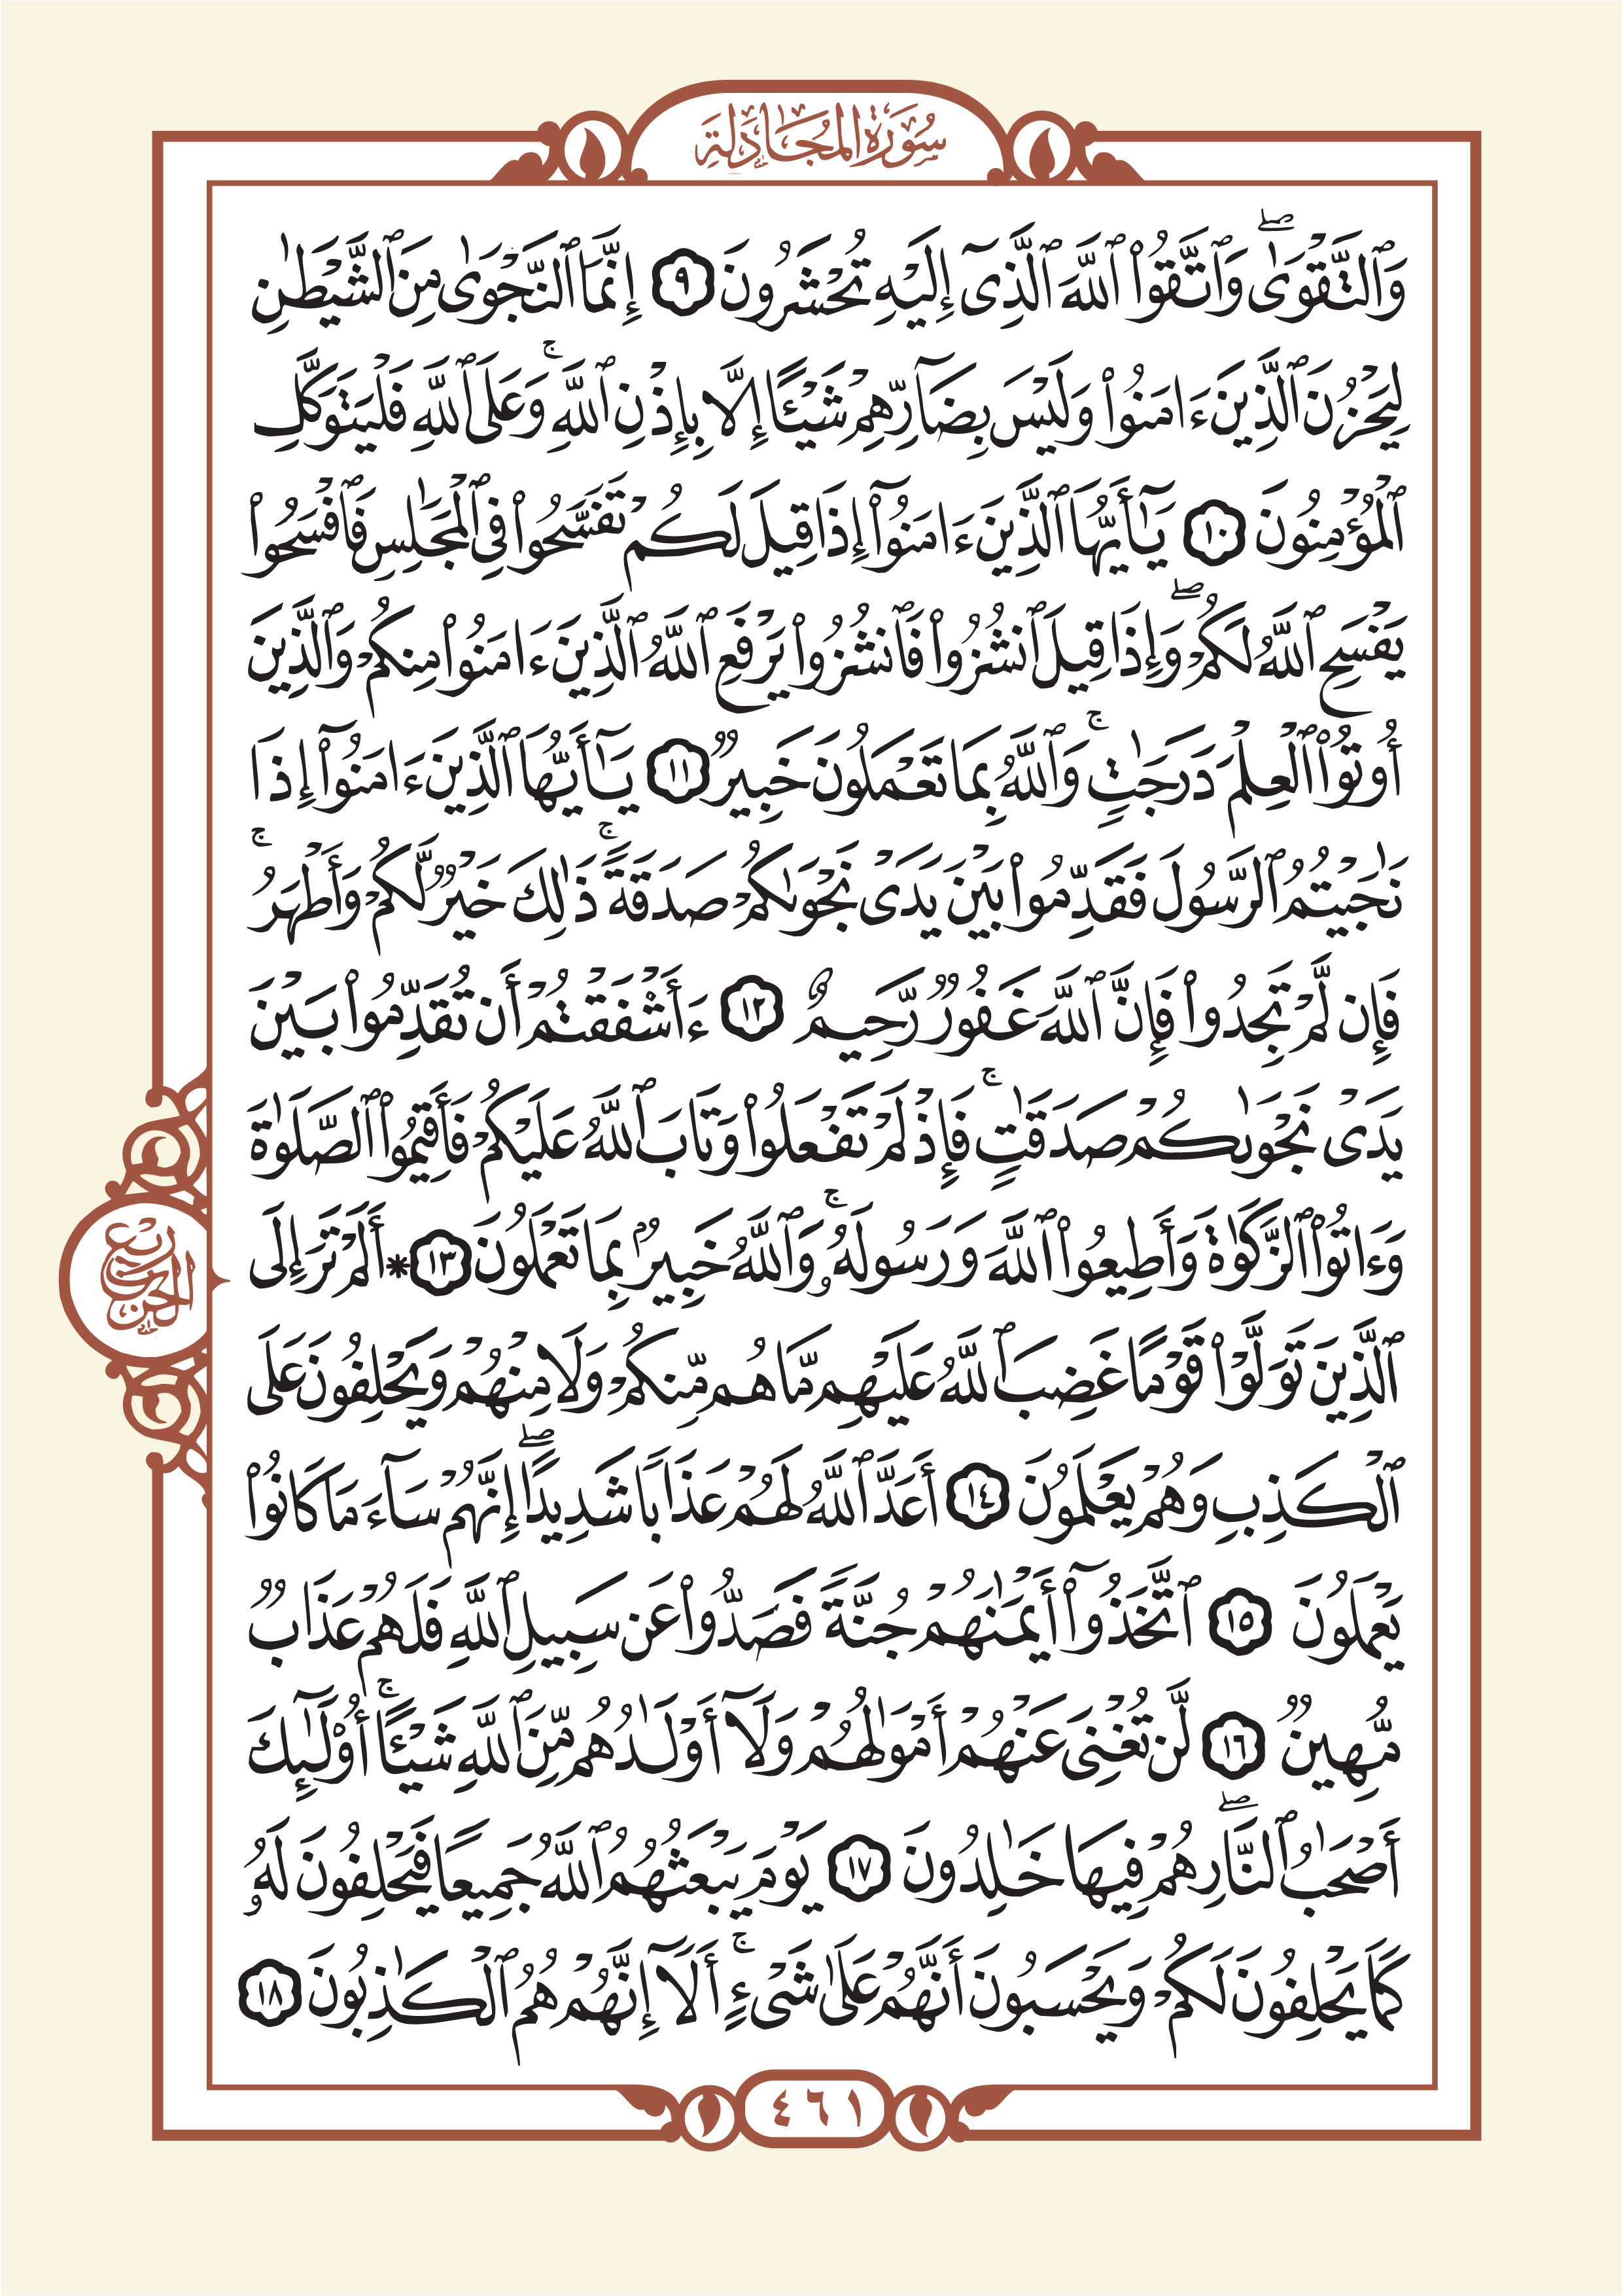 سُورَةُ المُجَادِلَةِ
وَٱلتَّقۡوَىٰۖ وَٱتَّقُواْ ٱللَّهَ ٱلَّذِيٓ إِلَيۡهِ تُحۡشَرُونَ ٩ إِنَّمَا ٱلنَّجۡوَىٰ مِنَ ٱلشَّيۡطَٰنِ
لِيَحۡزُنَ ٱلَّذِينَ ءَامَنُواْ وَلَيۡسَ بِضَآرِّهِمۡ شَيۡـًٔا إِلَّا بِإِذۡنِ ٱللَّهِۚ وَعَلَى ٱللَّهِ فَلۡيَتَوَكَّلِ
ٱلۡمُؤۡمِنُونَ ١٠ يَٰٓأَيُّهَا ٱلَّذِينَ ءَامَنُوٓاْ إِذَا قِيلَ لَكُمۡ تَفَسَّحُواْ فِي ٱلۡمَجَٰلِسِ فَٱفۡسَحُواْ
يَفۡسَحِ ٱللَّهُ لَكُمۡۖ وَإِذَا قِيلَ ٱنشُزُواْ فَٱنشُزُواْ يَرۡفَعِ ٱللَّهُ ٱلَّذِينَ ءَامَنُواْ مِنكُمۡ وَٱلَّذِينَ
أُوتُواْ ٱلۡعِلۡمَ دَرَجَٰتٖۚ وَٱللَّهُ بِمَا تَعۡمَلُونَ خَبِيرٞ ١١ يَٰٓأَيُّهَا ٱلَّذِينَ ءَامَنُوٓاْ إِذَا
نَٰجَيۡتُمُ ٱلرَّسُولَ فَقَدِّمُواْ بَيۡنَ يَدَيۡ نَجۡوَىٰكُمۡ صَدَقَةٗۚ ذَٰلِكَ خَيۡرٞ لَّكُمۡ وَأَطۡهَرُۚ
فَإِن لَّمۡ تَجِدُواْ فَإِنَّ ٱللَّهَ غَفُورٞ رَّحِيمٌ ١٢ ءَأَشۡفَقۡتُمۡ أَن تُقَدِّمُواْ بَيۡنَ
يَدَيۡ نَجۡوَىٰكُمۡ صَدَقَٰتٖۚ فَإِذۡ لَمۡ تَفۡعَلُواْ وَتَابَ ٱللَّهُ عَلَيۡكُمۡ فَأَقِيمُواْ ٱلصَّلَوٰةَ
وَءَاتُواْ ٱلزَّكَوٰةَ وَأَطِيعُواْ ٱللَّهَ وَرَسُولَهُۥۚ وَٱللَّهُ خَبِيرُۢ بِمَا تَعۡمَلُونَ ١٣ * أَلَمۡ تَرَ إِلَى
ٱلَّذِينَ تَوَلَّوۡاْ قَوۡمًا غَضِبَ ٱللَّهُ عَلَيۡهِم مَّا هُم مِّنكُمۡ وَلَا مِنۡهُمۡ وَيَحۡلِفُونَ عَلَى
ٱلۡكَذِبِ وَهُمۡ يَعۡلَمُونَ ١٤ أَعَدَّ ٱللَّهُ لَهُمۡ عَذَابٗا شَدِيدًاۖ إِنَّهُمۡ سَآءَ مَا كَانُواْ
يَعۡمَلُونَ ١٥ ٱتَّخَذُوٓاْ أَيۡمَٰنَهُمۡ جُنَّةٗ فَصَدُّواْ عَن سَبِيلِ ٱللَّهِ فَلَهُمۡ عَذَابٞ
مُّهِينٞ ١٦ لَّن تُغۡنِيَ عَنۡهُمۡ أَمۡوَٰلُهُمۡ وَلَآ أَوۡلَٰدُهُم مِّنَ ٱللَّهِ شَيۡـًٔاۚ أُوْلَٰٓئِكَ
أَصۡحَٰبُ ٱلنَّارِۖ هُمۡ فِيهَا خَٰلِدُونَ ١٧ يَوۡمَ يَبۡعَثُهُمُ ٱللَّهُ جَمِيعٗا فَيَحۡلِفُونَ لَهُۥ
كَمَا يَحۡلِفُونَ لَكُمۡ وَيَحۡسَبُونَ أَنَّهُمۡ عَلَىٰ شَيۡءٍۚ أَلَآ إِنَّهُمۡ هُمُ ٱلۡكَٰذِبُونَ ١٨
ربع
الحزب
٤٦١